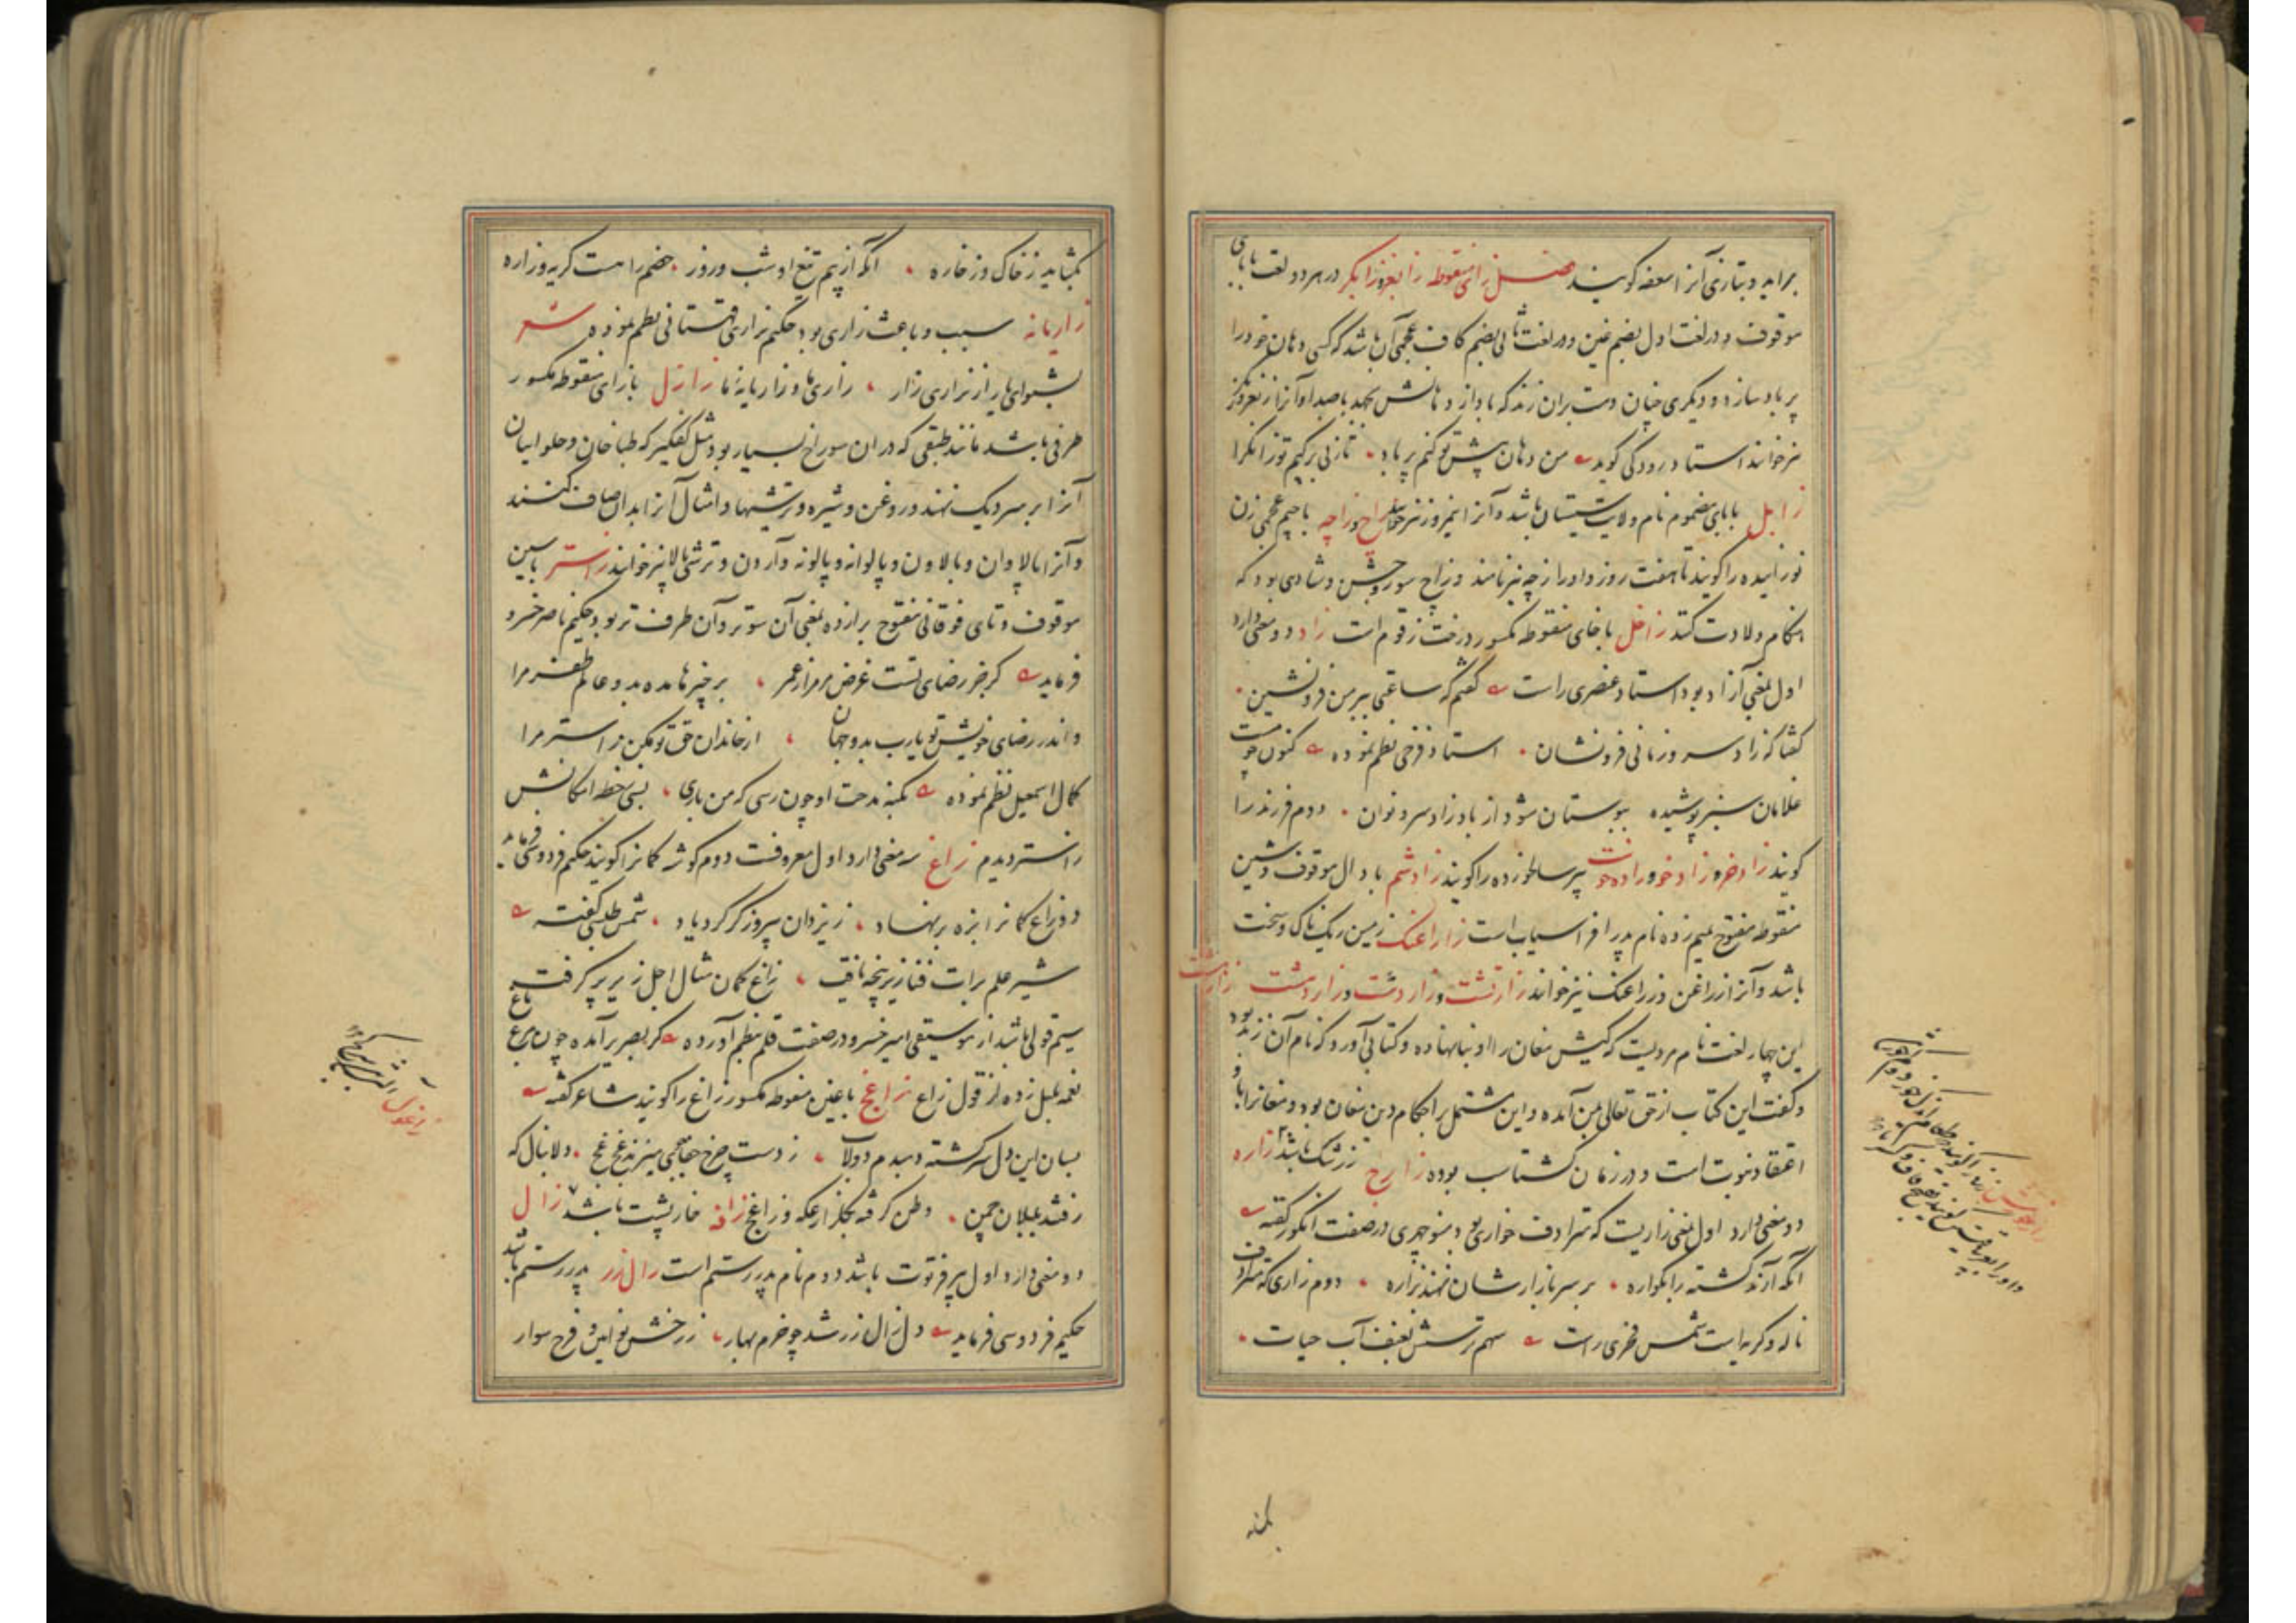 براید و بتازی آنرا سعفه گویند فصل زای منقوطه زابغر و زابگر در هر دو لغت بابای
موقوف و در لغت اول بضم غین و در لغت ثانی بضم کاف عجمی آن باشد که کسی دهان خود را
پر باد سازد و دیگری چنان دست بران زند که باد از دهانش بجهد با صدا و آنرا زنغر و زنگر
نیز خوانند استاد رودکی گوید من دهان پیش تو کنم پر باد تا زنی بر کپم تو زابگرا
زابل بابای مضموم نام ولایت سیستان باشد و آنرا نیمروز نیز خوانند زاج و زاچه باجیم عجمی زن
نوزاییده را گویند تا هفت روز و او را زچه نیز نامند و زاج سور و جشن و شادی بود که
هنگام ولادت کنند زاخل با خای منقوطه مکسور درخت زقوم است زاد دو معنی دارد
اول بمعنی آزاد بود استاد عنصری راست گفتم که ساعتی ببر من فرو نشین
گفتا که زاد سرو زمانی فرو نشان استاد فرخی نظم نموده کنون چو مست
غلامان سبز پوشیده ببوستان شود از باد زاد سرو نوان دوم فرزند را
گویند زادخر و زادخو و زاده خوست پیر سالخورده را گویند زادشم بادال موقوف و شین
منقوطه مفتوح بمیم زده نام پدر افراسیاب است زاراغنک زمین ریک ناک و سخت
باشد و آنرا زراغن و زراغنک نیز خوانند زارتشت و زاردشت و زاردهشت زارهشت
این چهار لغت نام مردیست که کیش مغان را او بنا نهاده و کتابی آورد که نام آن زند بود
و گفت این کتاب از حق تعالی بمن آمده و این مشتمل بر احکام دین مغان بود و مغانرا باو
اعتقاد نبوت است و در زمان گشتاسب بوده زارج زرشک باشد زاره
دو معنی دارد اول بمعنی زاریست که مترادف خواری بود منوچهری در صفت انگور گفته
آنگه آرند کشته را بگواره بر سر بازارشان نهند بزاره دوم زاری که مترادف
ناله و گریه است شمس فخری راست سهم ترسش بعنف آب حیات
بگشاید
بگشاید ز خاک وز خاره آنکه از بیم تیغ او شب و روز خصم را هست گریه و زاره
زاریانه سبب و باعث زاری بود حکیم نزاری قهستانی نظم نموده شعر
بشنو ای یار از نزاری زار زاریها و زاریانهٔ ما زازل بازای منقوطه مکسور
ظرفی باشد مانند طبقی که در آن سوراخ بسیار بود مثل کفگیر که طباخان و حلواییان
آنرا بر سر دیک نهند و روغن و شیره و ترشیها و امثال آنرا بدان صاف کنند
و آنرا بالاوان و بالاون و پالوانه و پالونه و آردن و ترشی پالا نیز خوانند زاستر باسین
موقوف و تای فوقانی مفتوح برا زده بمعنی آن سوتر و آن طرف تر بود حکیم ناصر خسرو
فرماید گر جز رضای تست غرض مر مرا ز عمر بر چیزها مده بدو عالم ظفر مرا
و اندر رضای خویش تو یارب بدو جهان از خاندان حق تو مکن زاستر مرا
کمال اسمعیل نظم نموده بکنه مدحت او چون رسی که من باری بسی ز خطهٔ امکانش
زاستر دیدم زاغ سه معنی دارد اول معروفست دوم گوشه کمانرا گویند حکیم فردوسی فرماید
دو زاغ کمانرا بزه بر نهاد ز یزدان پیروزگر کرد یاد شمس طبسی گفته
شیر علم برات فنا زیر پنجه یافت زاغ کمان مثال اجل زیر پر گرفت
سیم قولی باشد از موسیقی امیر خسرو در صفت قلم بنظم آورده گر بصریر آمده چون مرغ باغ
نغمه بلبل زده از قول زاغ زاغج باغین منقوطه مکسور زاغ را گویند شاعر گفته
بسان این دل سرگشته دمبدم دولاب ز دست چرخ
رفتند بلبلان چمن وطن گرفته بگلزار عکه و زاغج زافه خارپشت باشد زال
دو معنی دارد اول پیر فرتوت باشد دوم نام پدر رستم است زال زر پدر رستم باشد
حکیم فردوسی فرماید دل زال زر شد چو خرم بهار ز رخش نوآیین و فرخ سوار